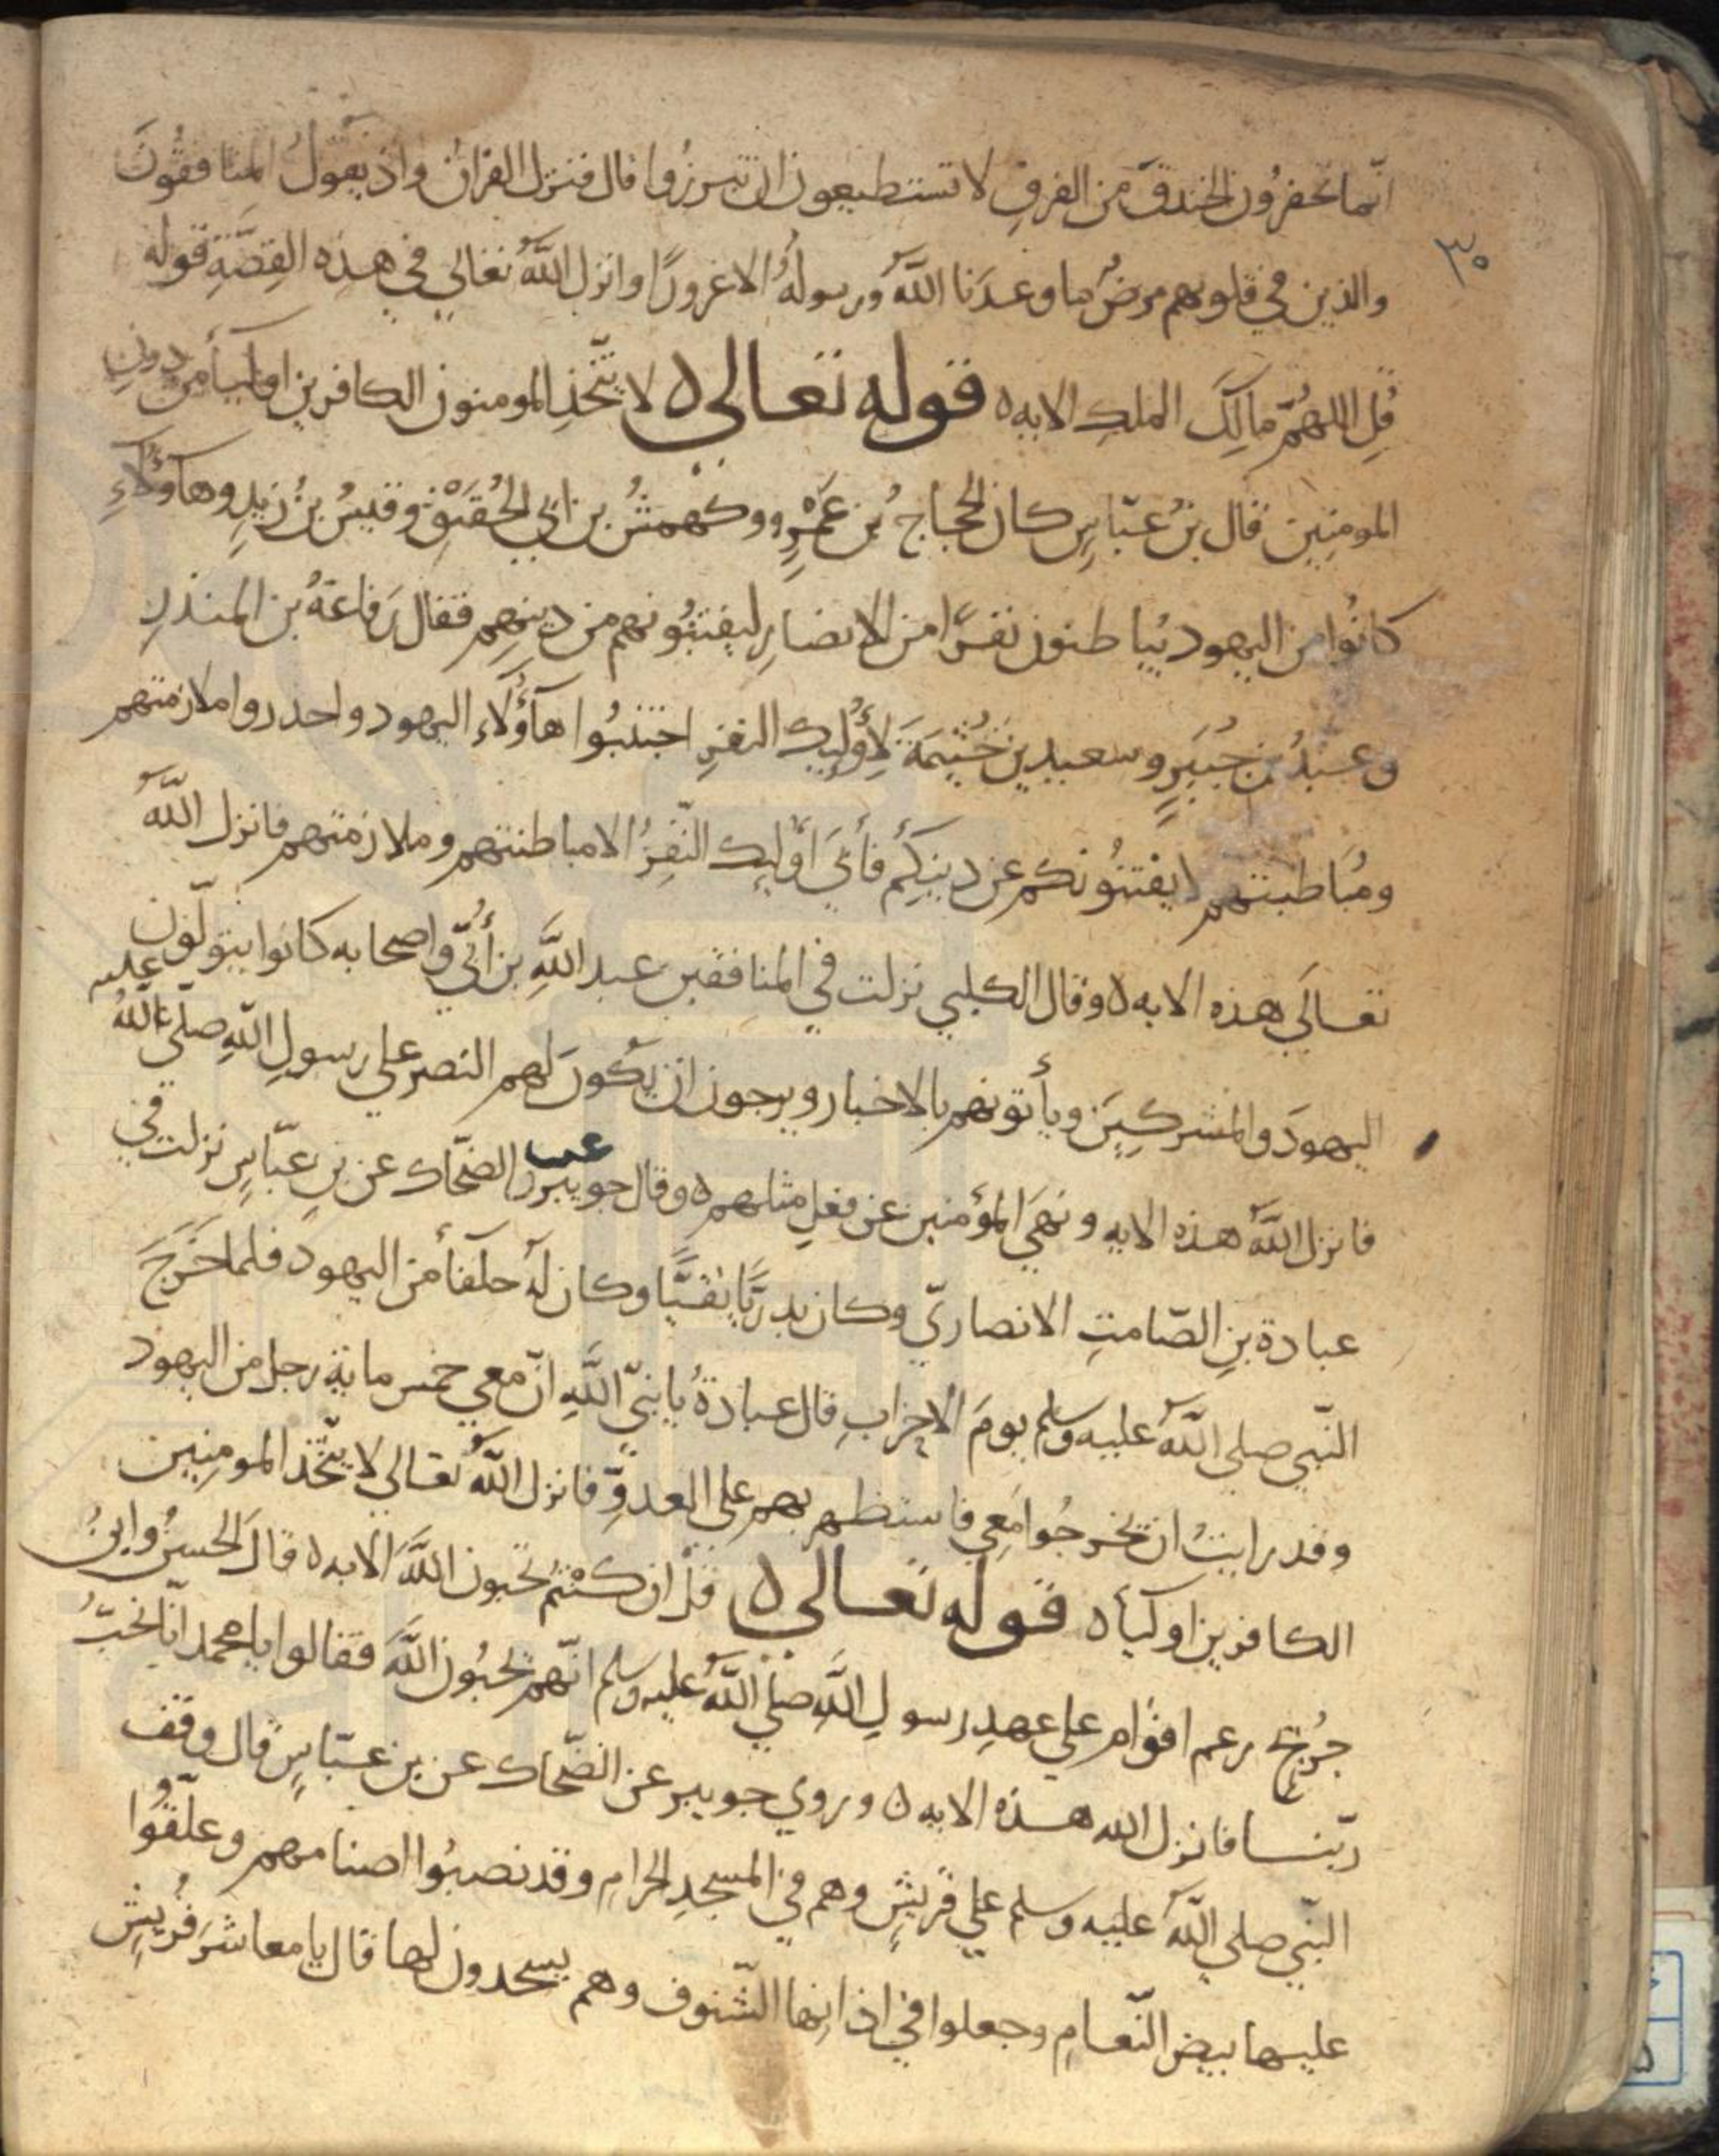 انّما تحفرُون الخندقَ من الفرقِ لا تستطيعون ان تبرزُوا قال فنزل القران واذ يقولُ المنافقُونَ
٣٠
والذين في قلوبهم مرضٌ ما وعدَنا اللَّهُ ورسولهُ الا غرورًا وانزل اللَّهُ تعالي في هذِه القِصّةِ قوله
قُلِ اللهُمَّ مالِكَ الملكِ الايه ٥ قوله تعالى ٥ لا يتّخذِ المومنون الكافرين اولياَ من دونِ
المومنِين قال بنُ عبّاسٍ كان الحجاج بُن عَمْرٍو وكهمسُ بن ابي الحُقَيْقِ وقيسُ بنُ زيدٍ وهآؤُلآءِ
كانُوا من اليهود يُباطنون نفرًا من الانصارِ ليفتنُونهم من دينِهِم فقال رَفاعَةُ بن المنذرِ
وعبدُ بن جُبَيرٍ وسعيد بن خُثيمَة لأُوليك النفرِ اجتنبُوا هآؤُلآءِ اليهود واحدروا ملازمتهم
ومُباطنتهم لا يفتنُونكم عن دينِكُم فأبَي اوليك النّفرُ الا مباطنتهم وملازمتهم فانزل اللَّهُ
تعالَي هذه الايه ٥ وقال الكلبي نزلت في المنافقين عبد اللَّهِ بن أُبيّ واصحابه كانوا يتولّون
اليهودَ والمشركِينَ ويأتونهم بالاخبار ويرجون ان يكونَ لهم النصر علي رسولِ اللَّهِ صلّي اللهُ عليه
فانزل اللَّهُ هذه الايه ونهَي المؤمنين عن فعلِ مثلهم ٥ وقال جويبر عن الضحّاك عن بن عبّاسٍ نزلت في
عبادة بنِ الصّامتِ الانصاريّ وكان بدريًّا نقيبًا وكان لهُ حلفأ من اليهود فلما خَرَجَ
النّبي صلي اللَّهُ عليه وسلم يومَ الاحزابِ قال عبادةُ يا نبيّ اللَّهِ انّ معي خمس ماية رجل من اليهود
وقد رايتُ ان يخرجُوا معِي فاستظهر بهم على العدوِّ فانزل اللَّهُ تعالي لا يتّخذ المومنِين
الكافرين اولياَ ٥ قوله تعالى ٥ قل ان كنتُم تحبون اللَّهَ الايه ٥ قالَ الحسنُ وابنُ
جُريجٍ زعم اقوام علي عهدِ رسولِ اللَّهِ صلي اللَّهُ عليه وسلم انّهم يحبُون اللَّهَ فقالوا يا محمد انّا نحبُّ
ربّنا فانزل الله هذه الايه ٥ وروي جويبر عن الضّحاك عن بن عبّاسٍ قال وقف
النّبي صلي اللَّهُ عليه وسلم علي قريشٍ وهم في المسجدِ الحرامِ وقد نصبُوا اصنامهم وعلّقُوا
عليها بيض النّعامِ وجعلوا في اذانِها الشّنوف وهم يسجدون لها قال يا معاشرَ قُريشٍ